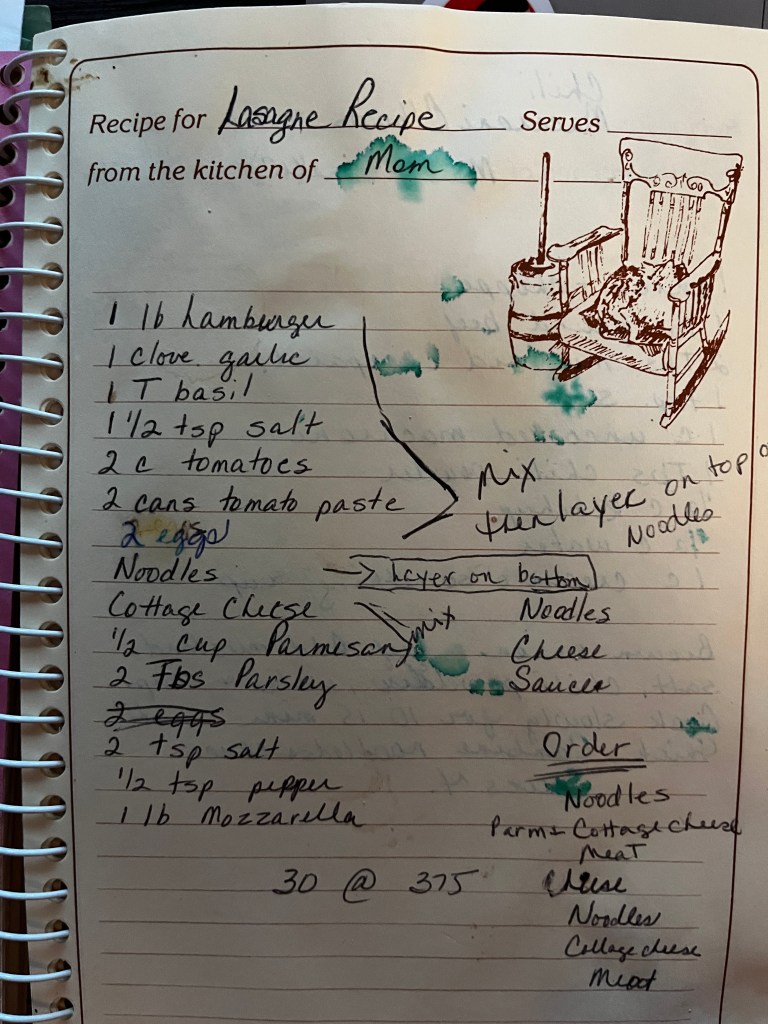 Recipe for Lasagne Recipe Serves
from the kitchen of Mom
1 lb hamburger
1 clove garlic
1 T basil
1 1/2 tsp salt
2 c tomatoes
2 cans tomato paste
Mix
then layer on top
Noodles
2 eggs
Noodles → Layer on bottom
Cottage Cheese mix Noodles
1/2 cup Parmesan Cheese
2 Tbs Parsley Sauce
2 eggs
2 tsp salt Order
1/2 tsp pepper Noodles
1 lb Mozzarella Parm + Cottage cheese
Meat
30 @ 375 Cheese
Noodles
Cottage cheese
Meat